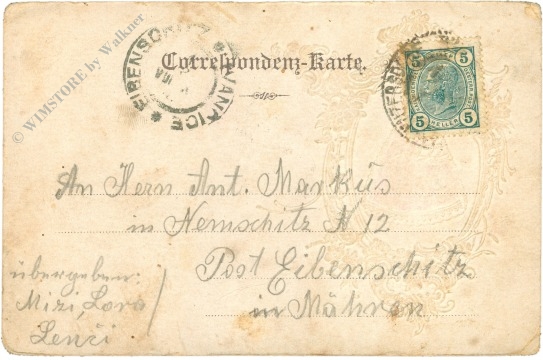 © WIMSTORE by Walkner
EIBENSCHITZ * IVANČICE *
Correspondenz-Karte.
5 5
5 HELLER 5
An Herrn Ant. Markus
in Nemschitz N 12
Post Eibenschitz
in Mähren
übergeben:
Mizi, Lora
Lenči